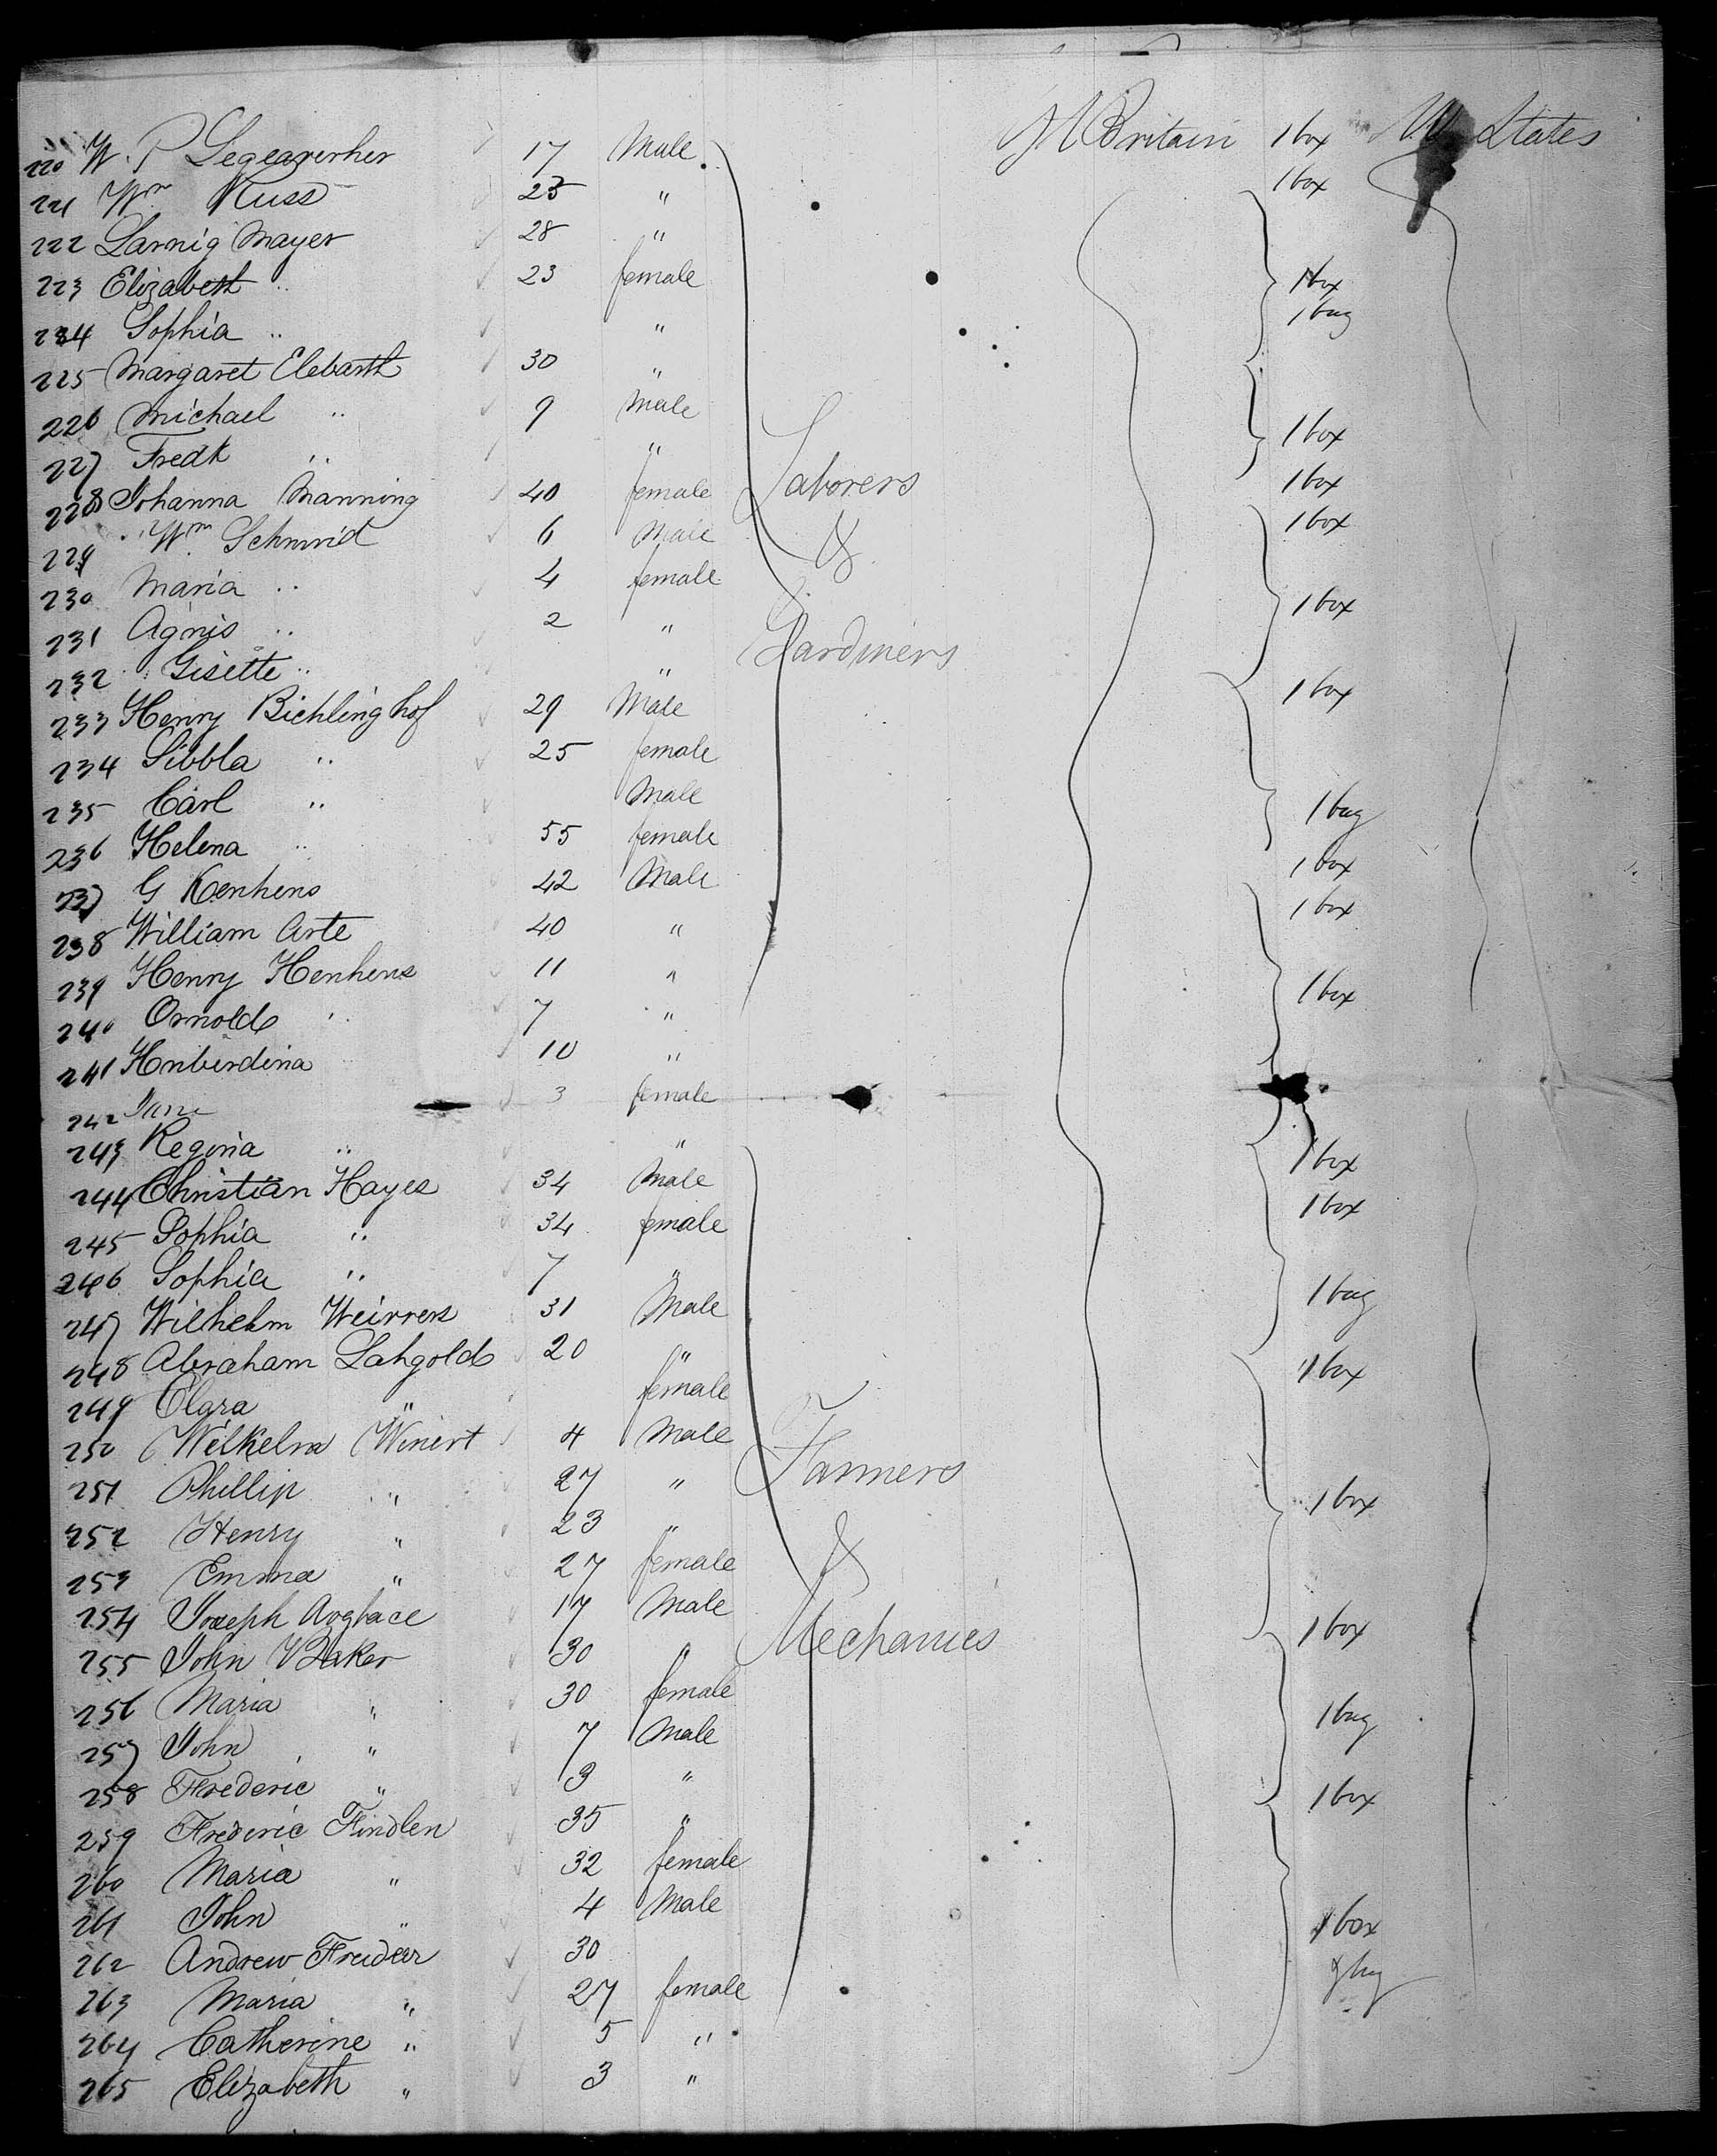 220 W. P Legearerher 17 Male Britain 1 box States
221 Wm Russ 25 " 1 box
222 Larnig Mayer 28 "
223 Elizabeth " 23 female 1 box
224 Sophia " " 1 bag
225 Margaret Elebarth 30 "
226 Michael " 9 Male 1 box
227 Fredk " "
228 Johanna Manning 40 female Laborers 1 box
229 Wm Schmid 6 Male & 1 box
230 Maria " 4 female
231 Agnis " 2 " Gardiners 1 box
232 Gisette " "
233 Henry Bichlinghof 29 Male 1 box
234 Sibbla " 25 female
235 Carl " Male 1 bag
236 Helena " 55 female
237 G Kenhens 42 Male 1 box
238 William Arte 40 " 1 box
239 Henry Henhens 11 "
240 Ornold " 7 " 1 box
241 Hnberdina 10 "
242 Jane 3 female
243 Regina " " 1 box
244 Christian Hayes 34 Male
245 Sophia " 34 female 1 box
246 Sophia " 7 "
247 Wilhelm Weirrers 31 Male 1 bag
248 Abraham Lahgold 20 " 1 box
249 Clara " female
250 Wilhelm Winert 4 Male Farmers
251 Phillip " 27 " 1 box
252 Henry " 23 " &
253 Emma " 27 female
254 Joseph 17 Male Mechanics 1 box
255 John Baker 30 "
256 Maria " 30 female
257 John " 7 Male 1 bag
258 Frederic " 3 "
259 Frederic Findlen 35 " 1 box
260 Maria " 32 female
261 John " 4 Male 1 box
262 Andrew Freider 30
263 Maria " 27 female bag
264 Catherine " 5 "
265 Elizabeth " 3 "